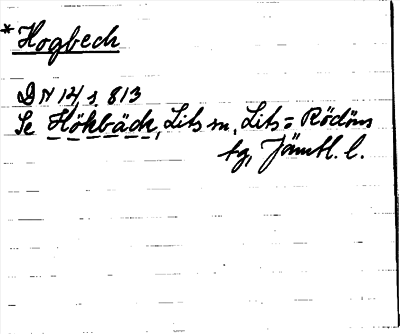 * Hogbeck
DN 12, s. 813
Se Hökbäck, Lits sn, Lits = Rödöns
tg, Jämtl. l.